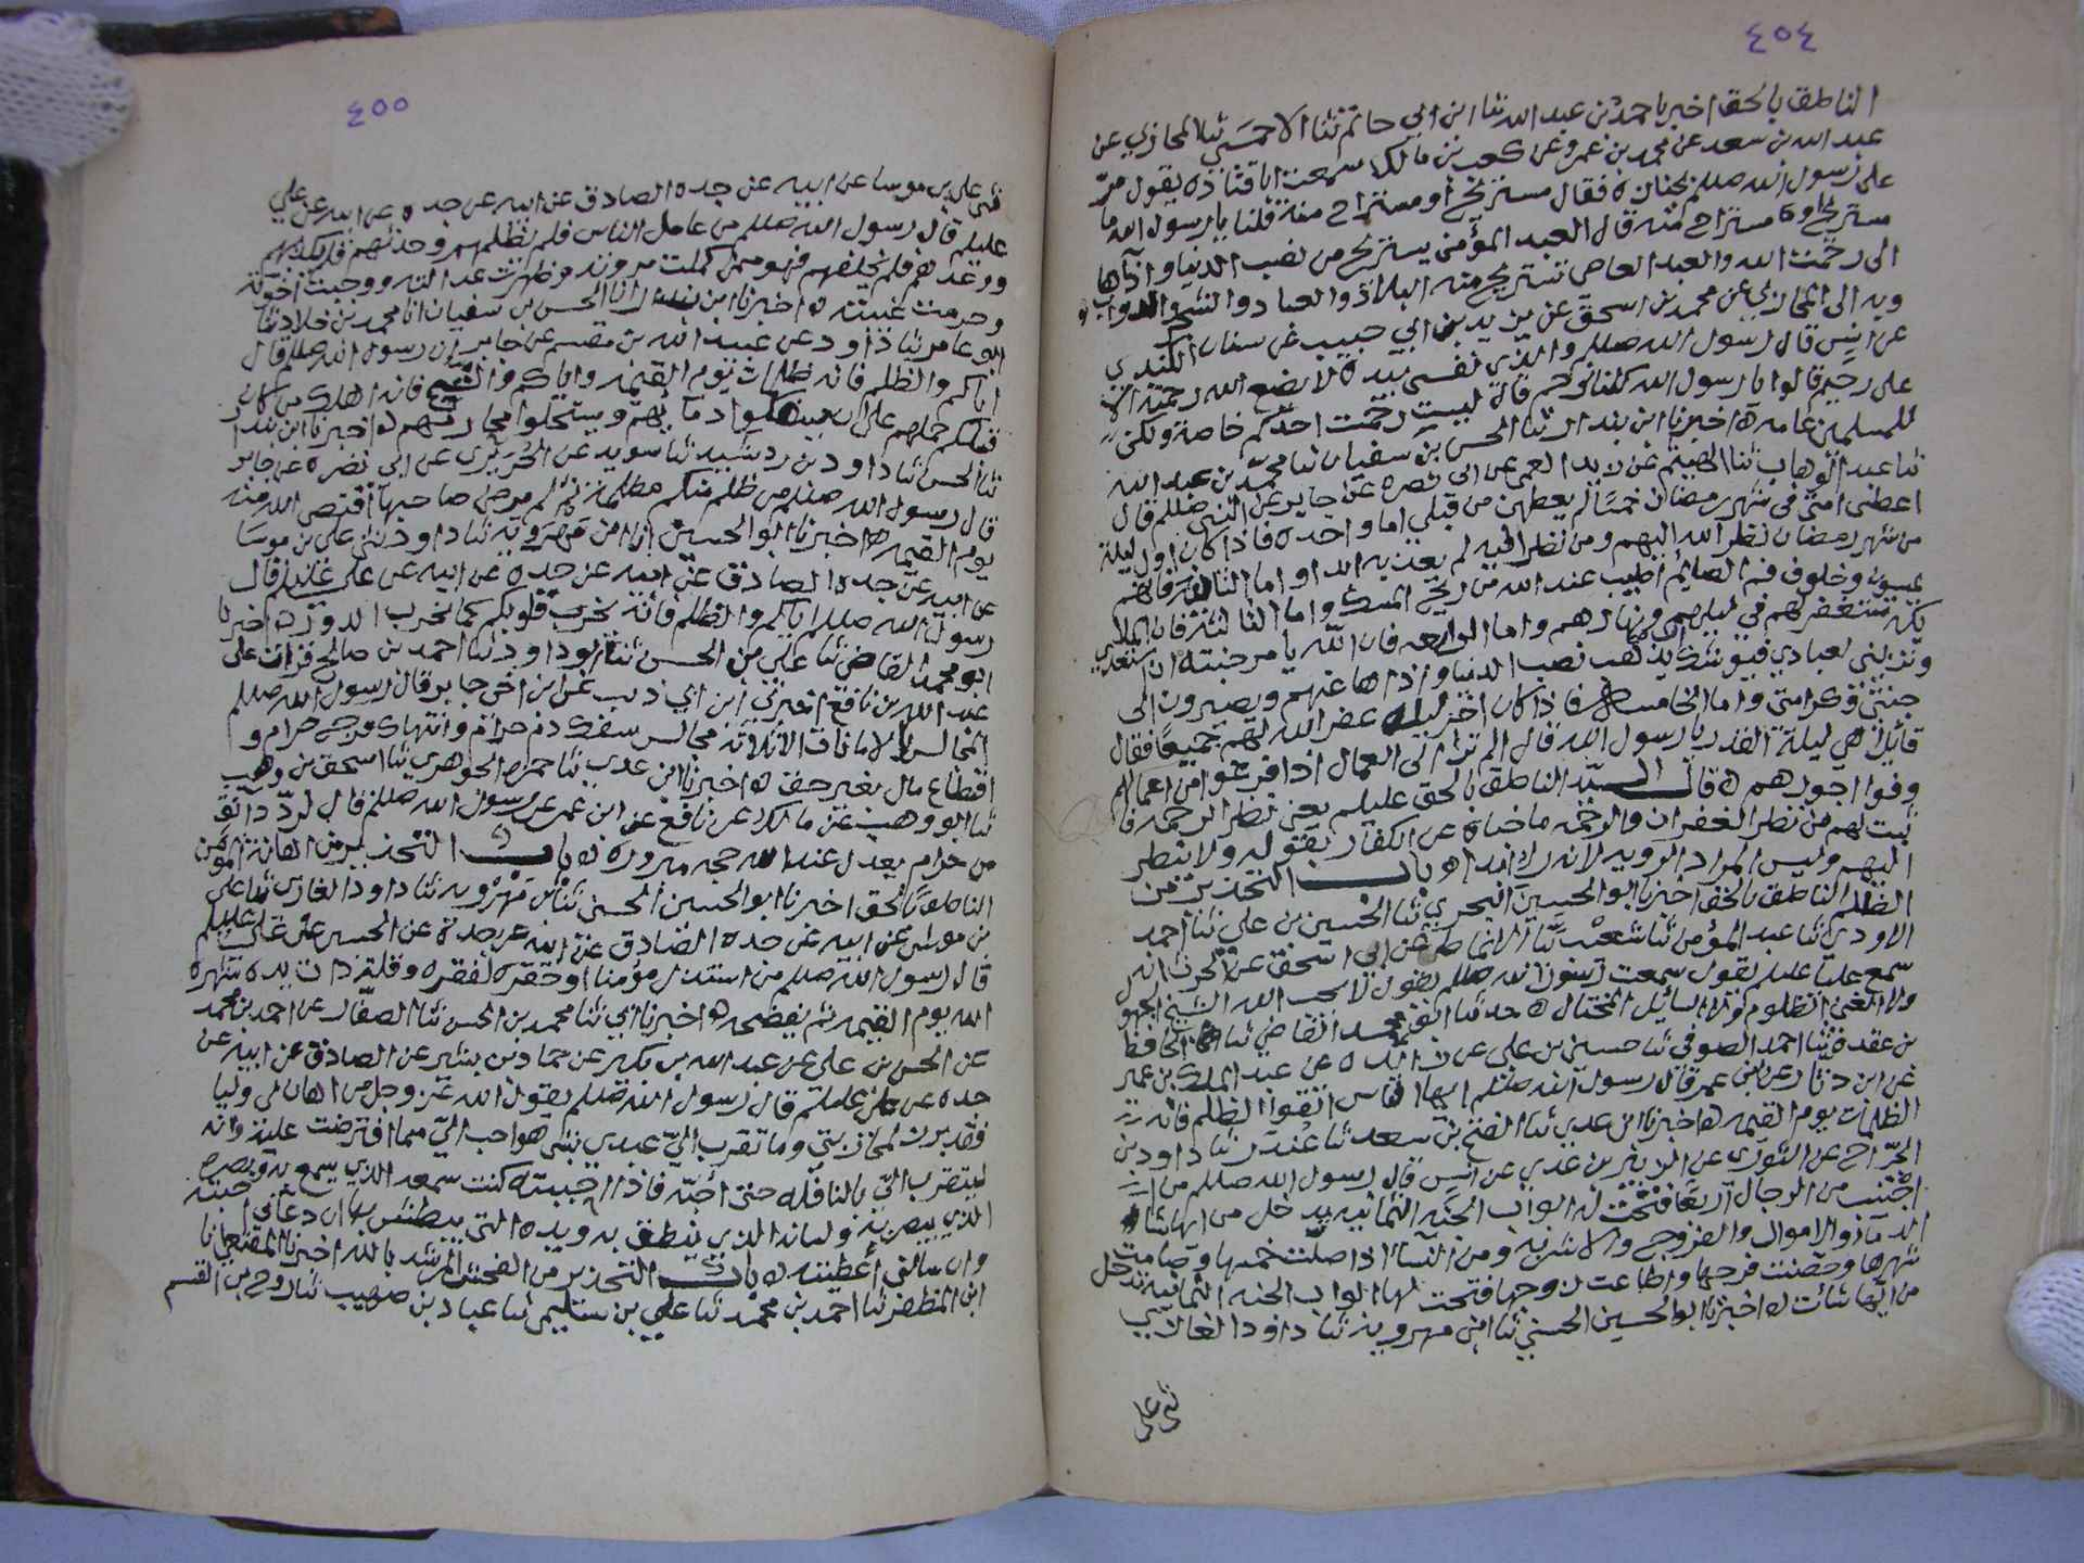 ٤٥٤
الناطق بالحق اخبرنا احمد بن عبد الله ثنا ابن ابي حاتم ثنا الاحمسي ثنا المحاربي عن
عبد الله بن سعد عن محمد بن عمرو عن كعب بن مالك سمعت ابا قتادة يقول مر
على رسول الله صللم بجنازه فقال مستريح او مستراح منه قلنا يا رسول الله ما
مستريح او مستراح منه قال العبد المؤمن يستريح من نصب الدنيا واذاها
الى رحمت الله والعبد العاصي تستريح منه البلاد والعباد والشجر والدواب
وبه الى المحاربي عن محمد بن اسحق عن يزيد بن ابي حبيب عن سنان الكندي
عن انس قال رسول الله صللم والذي نفسي بيده لا يضع الله رحمته الا
على رحيم قالوا يا رسول الله كلنا نرحم قال ليست رحمت احدكم خاصة ولكن
للمسلمين عامه ه اخبرنا ابن بندار ثنا الحسن بن سفيان ثنا محمد بن عبد الله
ثنا عبد الوهاب ثنا الهيثم عن زيد العمي عن ابي نصره عن جابر عن النبي صللم قال
اعطى امتي في شهر رمضان خمسًا لم يعطهن من قبلي اما واحده فاذا كان اول ليلة
من شهر رمضان نظر الله اليهم ومن نظر اليه لم يعذبه ابدا واما الثانيه فانهم
يمسون وخلوف فم الصايم اطيب عند الله من ريح المسك واما الثالثه فان الملائكه
تستغفر لهم في ليلهم ونهارهم واما الرابعه فان الله يامر جنته ان استعدي
وتزيني لعبادي فيوشك ان يذهب نصب الدنيا واذاها عنهم ويصيرون الى
جنتي وكرامتي واما الخامسه فاذا كان اخر ليله غفر الله لهم جميعًا فقال
قائل هي ليلة القدر يا رسول الله قال الم تر الى العمال اذا فرغوا من اعمالهم
وفوا اجورهم ه قال السيد الناطق بالحق عليلم يعني نظر الرحمه
ثبت لهم من نظر الغفران والرحمه ما خباه عن الكفار بقوله ولا ينظر
اليهم وليس المراد الرويه لانه راء ابدا ه باب التحذير من
الظلم الناطق بالحق اخبرنا ابو الحسين البحري ثنا الحسين بن علي ثنا احمد
الاودي ثنا عبد المؤمن ثنا شعيب ثنا الانماطي عن ابي اسحق عن الحرث انه
سمع عليا عليلم يقول سمعت رسول الله صللم يقول لا يحب الله الشيخ الجهول
ولا الغني الظلوم ولا السايل المختال ه حدثنا ابو محمد القاضي ثنا الحافظ
بن عقدة ثنا احمد الصوفي ثنا حسين بن علي عن زائده عن عبد الملك بن عمير
عن ابن دثار عن ابن عمر قال رسول الله صللم ايها الناس اتقوا الظلم فانه
الظلمات يوم القيمه ه اخبرنا ابن عدي ثنا الفتح بن سعد ثنا عندر ثنا داود بن
الجراح عن الثوري عن الزبير بن عدي عن انس قال رسول الله صللم من
اجتنب من الرجال اربعًا فتحت له ابواب الجنه الثمانيه يدخل من ايها شاء
الدماء والاموال والفروج والاشربه ومن النساء اذا صلت خمسها وصامت
شهرها وحصنت فرجها واطاعت زوجها فتحت لها ابواب الجنه الثمانيه تدخل
من ايها شاءت ه اخبرنا ابو الحسين الحسني ثنا ابن مهرويه ثنا داود الغازي
ثني علي
٤٥٥
ثني علي بن موسا عن ابيه عن جده الصادق عن ابيه عن جده عن ابيه عن علي
عليلم قال رسول الله صللم من عامل الناس فلم يظلمهم وحدثهم فلم يكذبهم
ووعدهم فلم يخلفهم فهو ممن كملت مروته وظهرت عدالته ووجبت اخوته
وحرمت غيبته ه اخبرنا ابن بندار انا الحسن بن سفيان انا محمد بن خلاد ثنا
ابو عامر ثنا داود عن عبيد الله بن مقسم عن جابر ان رسول الله صللم قال
اياكم والظلم فانه ظلمات يوم القيمه واياكم والشح فانه اهلك من كان
قبلكم حملهم على ان سفكوا دمائهم ويستحلوا محارمهم ه اخبرنا ابن بندار
ثنا الحسن ثنا داود بن رشيد ثنا سويد عن الجريري عن ابي نضره عن جابر
قال رسول الله صللم من ظلم منكم مظلمة ثم لم يرض صاحبها اقتص الله منه
يوم القيمه ه اخبرنا ابو الحسين انا ابن مهرويه ثنا داود ثني علي بن موسا
عن ابيه عن جده الصادق عن ابيه عن جده عن ابيه عن علي عليلم قال
رسول الله صللم اياكم والظلم فانه يخرب قلوبكم كما يخرب الدور ه اخبرنا
ابو محمد القاضي ثنا علي بن الحسن ثنا ابو داود ثنا احمد بن صالح قرات على
عبد الله بن نافع اخبرني ابن ابي ذيب عن ابن اخي جابر قال رسول الله صللم
المجالس بالامانات الا ثلاثه مجالس سفك دم حرام وانتهاك فرج حرام و
اقتطاع مال بغير حق ه اخبرنا ابن عدي ثنا حمزه الجوهري ثنا اسحق بن وهب
ثنا ابو وهب عن مالك عن نافع عن ابن عمر عن رسول الله صللم قال لرد دانق
من حرام يعدل عند الله حجه مبروره ه باب التحذير من اهانة المؤمن
الناطق بالحق اخبرنا ابو الحسين الحسني ثنا بن مهرويه ثنا داود الغازي ثنا علي
بن موسا عن ابيه عن جده الصادق عن ابيه عن جده عن الحسين عن علي عليلم
قال رسول الله صللم من استذل مؤمنا او حقره لفقره وقلة ذات يده شهره
الله يوم القيمه ثم يفضحه ه اخبرنا ابي ثنا محمد بن الحسن ثنا الصفار عن احمد بن محمد
عن الحسن بن علي عن عبد الله بن بكير عن حماد بن بشير عن الصادق عن ابيه عن
جده عن علي عليلم قال رسول الله صللم يقول الله عز وجل من اهان لي وليا
فقد برز لمحاربتي وما تقرب الي عبدي بشي هو احب الي مما افترضت عليه وانه
ليتقرب الي بالنافله حتى احبه فاذا احببته كنت سمعه الذي يسمع به وبصره
الذي يبصر به ولسانه الذي ينطق به ويده التي يبطش بها ان دعاني اجبته
وان سالني اعطيته ه باب التحذير من الفحش المرشد بالله اخبرنا المقنعي انا
ابن المظفر ثنا احمد بن محمد ثنا علي بن سليم ثنا عباد بن صهيب ثنا روح بن القسم